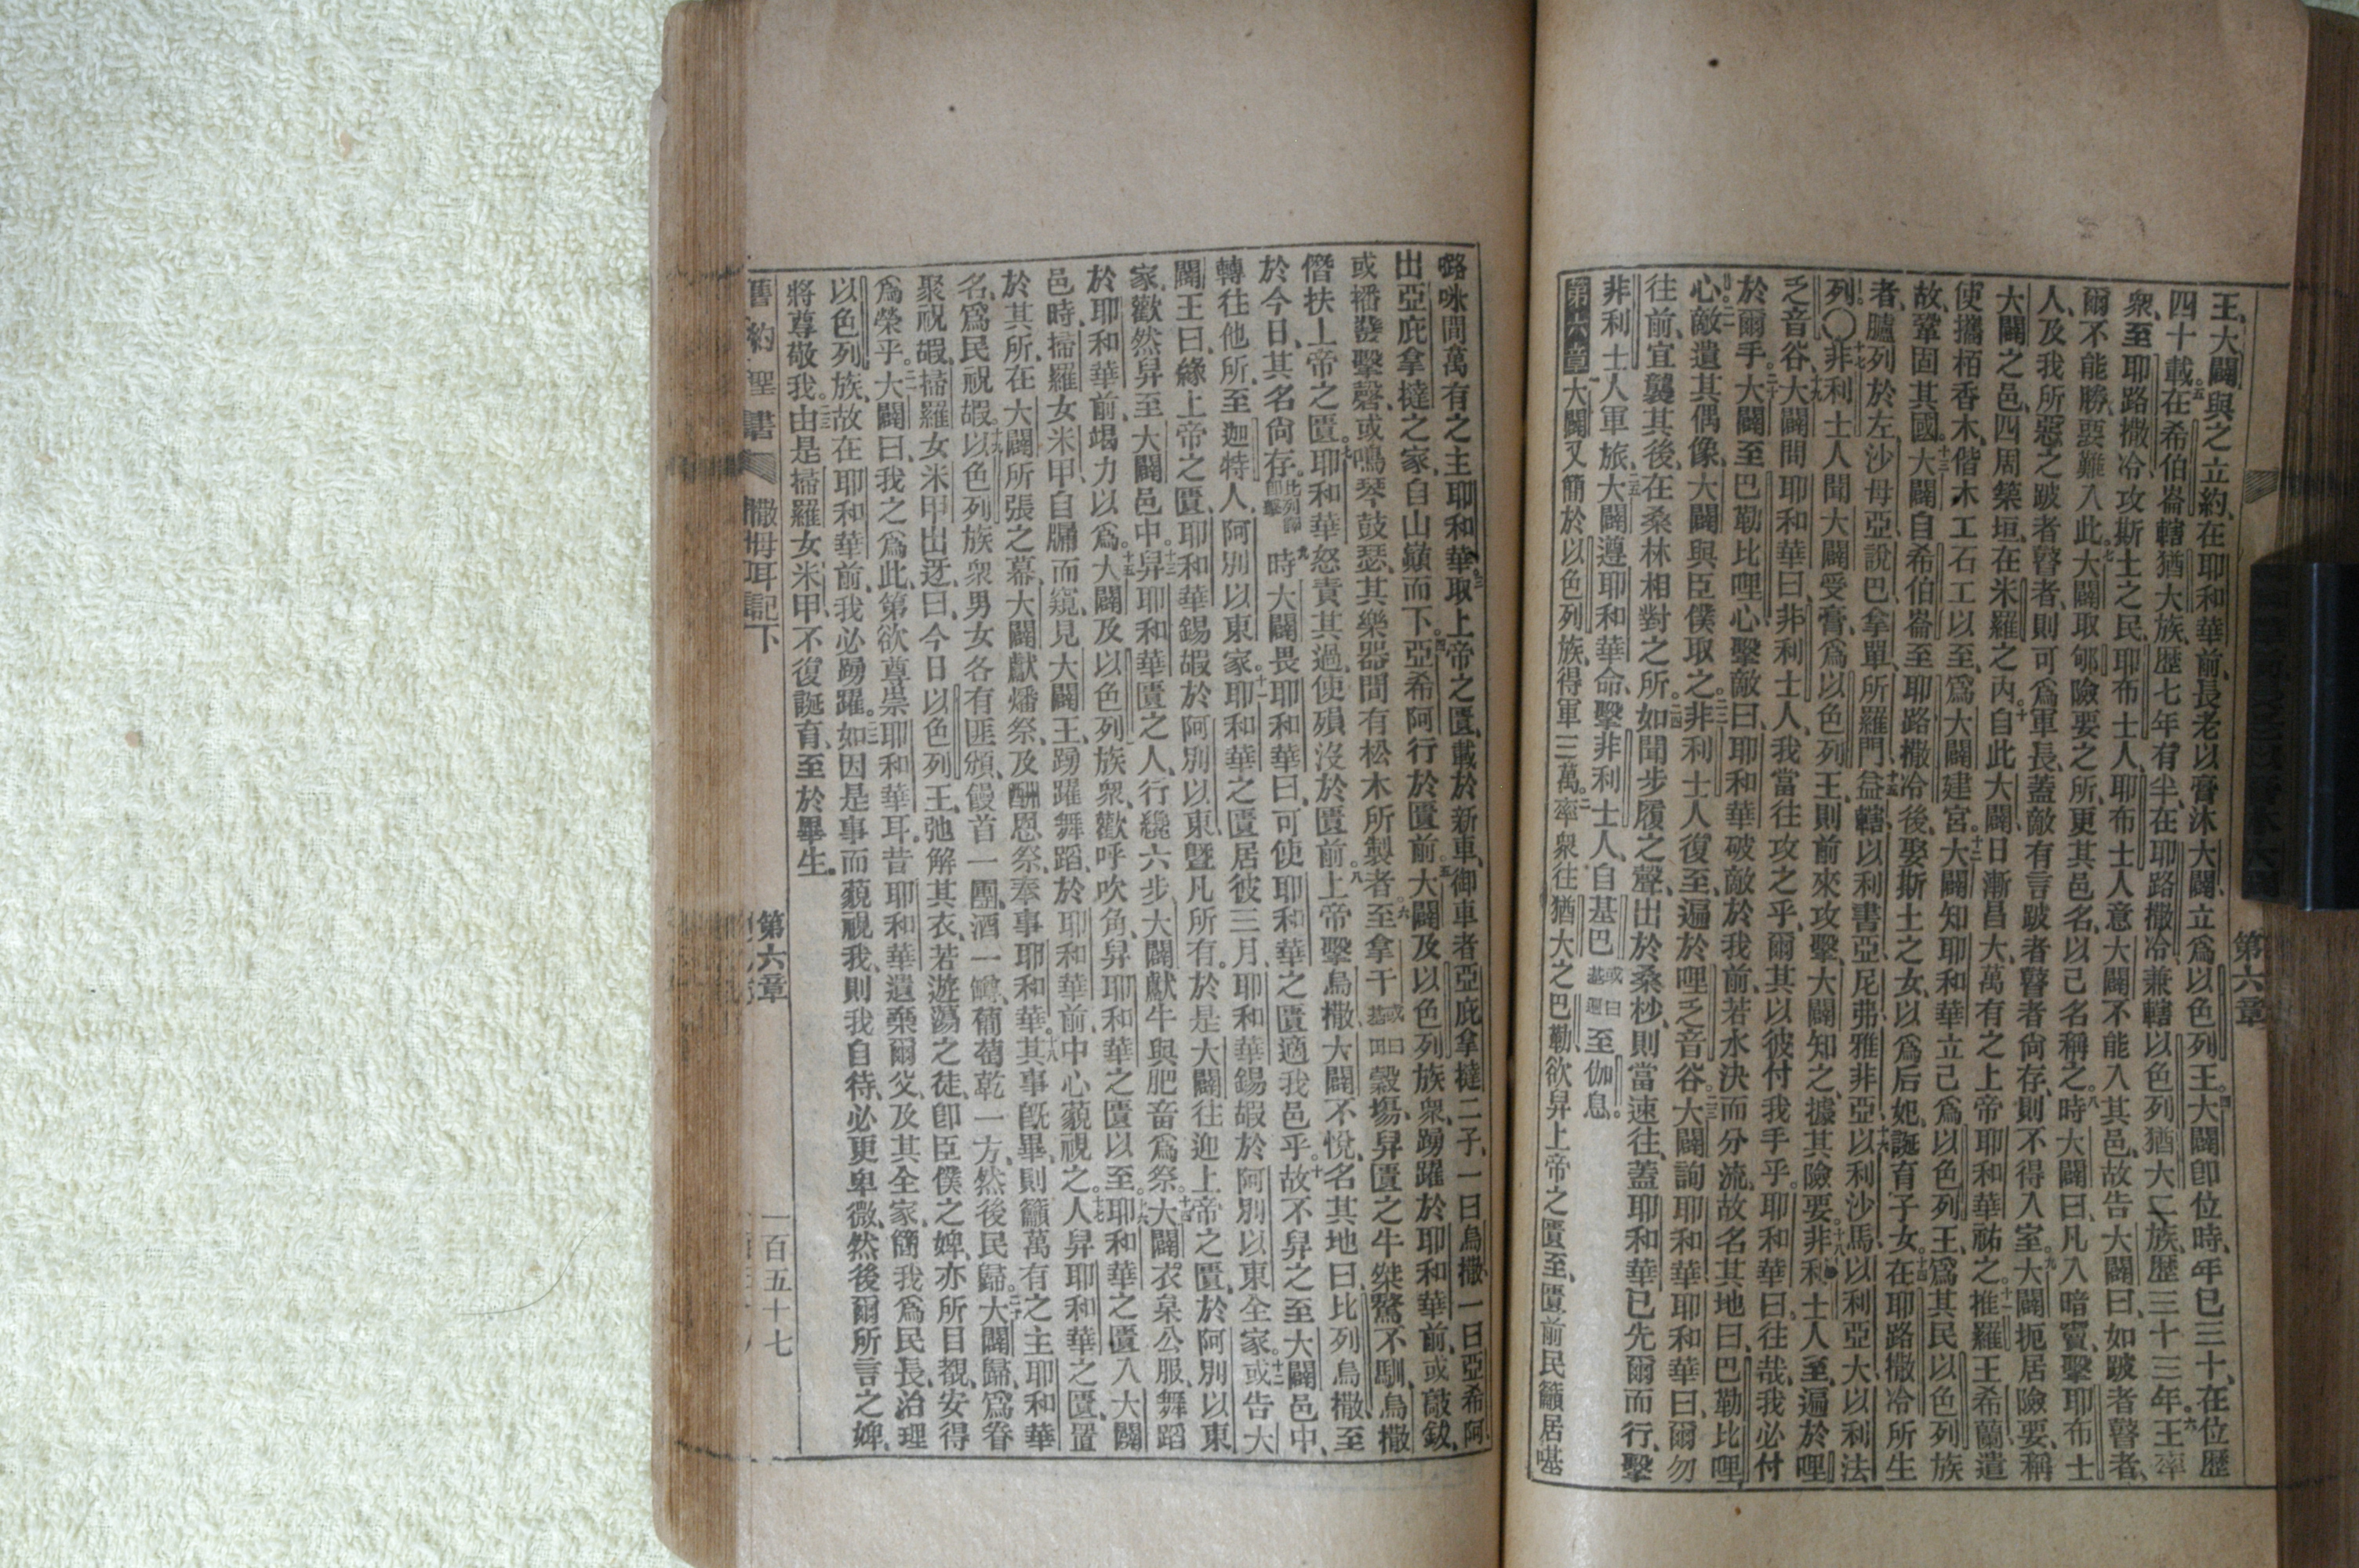 王大闢與之立約在耶和華前長老以膏沐大闢立爲以色列王。五大闢卽位時年已三十在位歷
四十載。五在希伯崙轄猶大族歷七年有半在耶路撒冷兼轄以色列猶大二族歷三十三年。六王率
衆至耶路撒冷攻斯土之民耶布士人耶布士人意大闢不能入其邑故告大闢曰如跛者瞽者
爾不能勝要難入此。七大闢取郇險要之所更其邑名以己名稱之。八時大闢曰凡入暗竇擊耶布士
人及我所惡之跛者瞽者則可爲軍長蓋敵有言跛者瞽者尙存則不得入室。九大闢扼居險要稱
大闢之邑四周築垣在米羅之內。十自此大闢日漸昌大萬有之上帝耶和華祐之。十一推羅王希蘭遣
使攜栢香木偕木工石工以至爲大闢建宮。十二大闢知耶和華立己爲以色列王爲其民以色列族
故鞏固其國。十三大闢自希伯崙至耶路撒冷後娶斯土之女以爲后妃誕育子女。十四在耶路撒冷所生
者臚列於左沙母亞說巴拿單所羅門十五益轄以利書亞尼弗雅非亞十六以利沙馬以利亞大以利法
列〇十七非利士人聞大闢受膏爲以色列王則前來攻擊大闢知之據其險要。十八非利士人至遍於哩
乏音谷十九大闢問耶和華曰非利士人我當往攻之乎爾其以彼付我手乎耶和華曰往哉我必付
於爾手。二十大闢至巴勒比哩心擊敵曰耶和華破敵於我前若水決而分流故名其地曰巴勒比哩
心二一敵遺其偶像大闢與臣僕取之。二二非利士人復至遍於哩乏音谷。二三大闢詢耶和華耶和華曰爾勿
往前宜襲其後在桑林相對之所。二四如聞步履之聲出於桑杪則當速往蓋耶和華已先爾而行擊
非利士人軍旅二五大闢遵耶和華命擊非利士人自基巴或曰基遍至伽息。
第六章大闢又簡於以色列族得軍三萬。二率衆往猶大之巴勒欲舁上帝之匱至匱前民籲居𠼻
第六章
𡀔咏間萬有之主耶和華三取上帝之匱載於新車御車者亞庇拿撻二子一曰烏撒一曰亞希阿
出亞庇拿撻之家自山巔而下。四亞希阿行於匱前。五大闢及以色列族衆踴躍於耶和華前或敲鈸
或播鼗擊磬或鳴琴鼓瑟其樂器間有松木所製者。六至拿干或曰基田穀塲舁匱之牛桀驁不馴烏撒
僭扶上帝之匱。七耶和華怒責其過使殞沒於匱前。八上帝擊烏撒大闢不悅名其地曰比列烏撒至
於今日其名尙存。比列譯卽擊九時大闢畏耶和華曰可使耶和華之匱適我邑乎。十故不舁之至大闢邑中
轉往他所至迦特人阿別以東家。十一耶和華之匱居彼三月耶和華錫嘏於阿別以東全家。十二或告大
闢王曰緣上帝之匱耶和華錫嘏於阿別以東曁凡所有。於是大闢往迎上帝之匱於阿別以東
家歡然舁至大闢邑中。十三舁耶和華匱之人行纔六步大闢獻牛與肥畜爲祭。十四大闢衣枲公服舞蹈
於耶和華前竭力以爲。十五大闢及以色列族衆歡呼吹角舁耶和華之匱以至。十六耶和華之匱入大闢
邑時掃羅女米甲自牖而窺見大闢王踴躍舞蹈於耶和華前中心藐視之。十七人舁耶和華之匱置
於其所在大闢所張之幕大闢獻燔祭及酬恩祭奉事耶和華。十八其事旣畢則籲萬有之主耶和華
名爲民祝嘏。十九以色列族衆男女各有匪頒饅首一團酒一鱒葡萄乾一方然後民歸。二十大闢歸爲眷
聚祝嘏掃羅女米甲出迓曰今日以色列王弛解其衣若遊蕩之徒卽臣僕之婢亦所目覩安得
爲榮乎。二一大闢曰我之爲此第欲尊崇耶和華耳昔耶和華遺棄爾父及其全家簡我爲民長治理
以色列族故在耶和華前我必踴躍。二二如因是事而藐視我則我自待必更卑微然後爾所言之婢
將尊敬我。二三由是掃羅女米甲不復誕育至於畢生。
舊約聖書 撒母耳記下 第六章 一百五十七